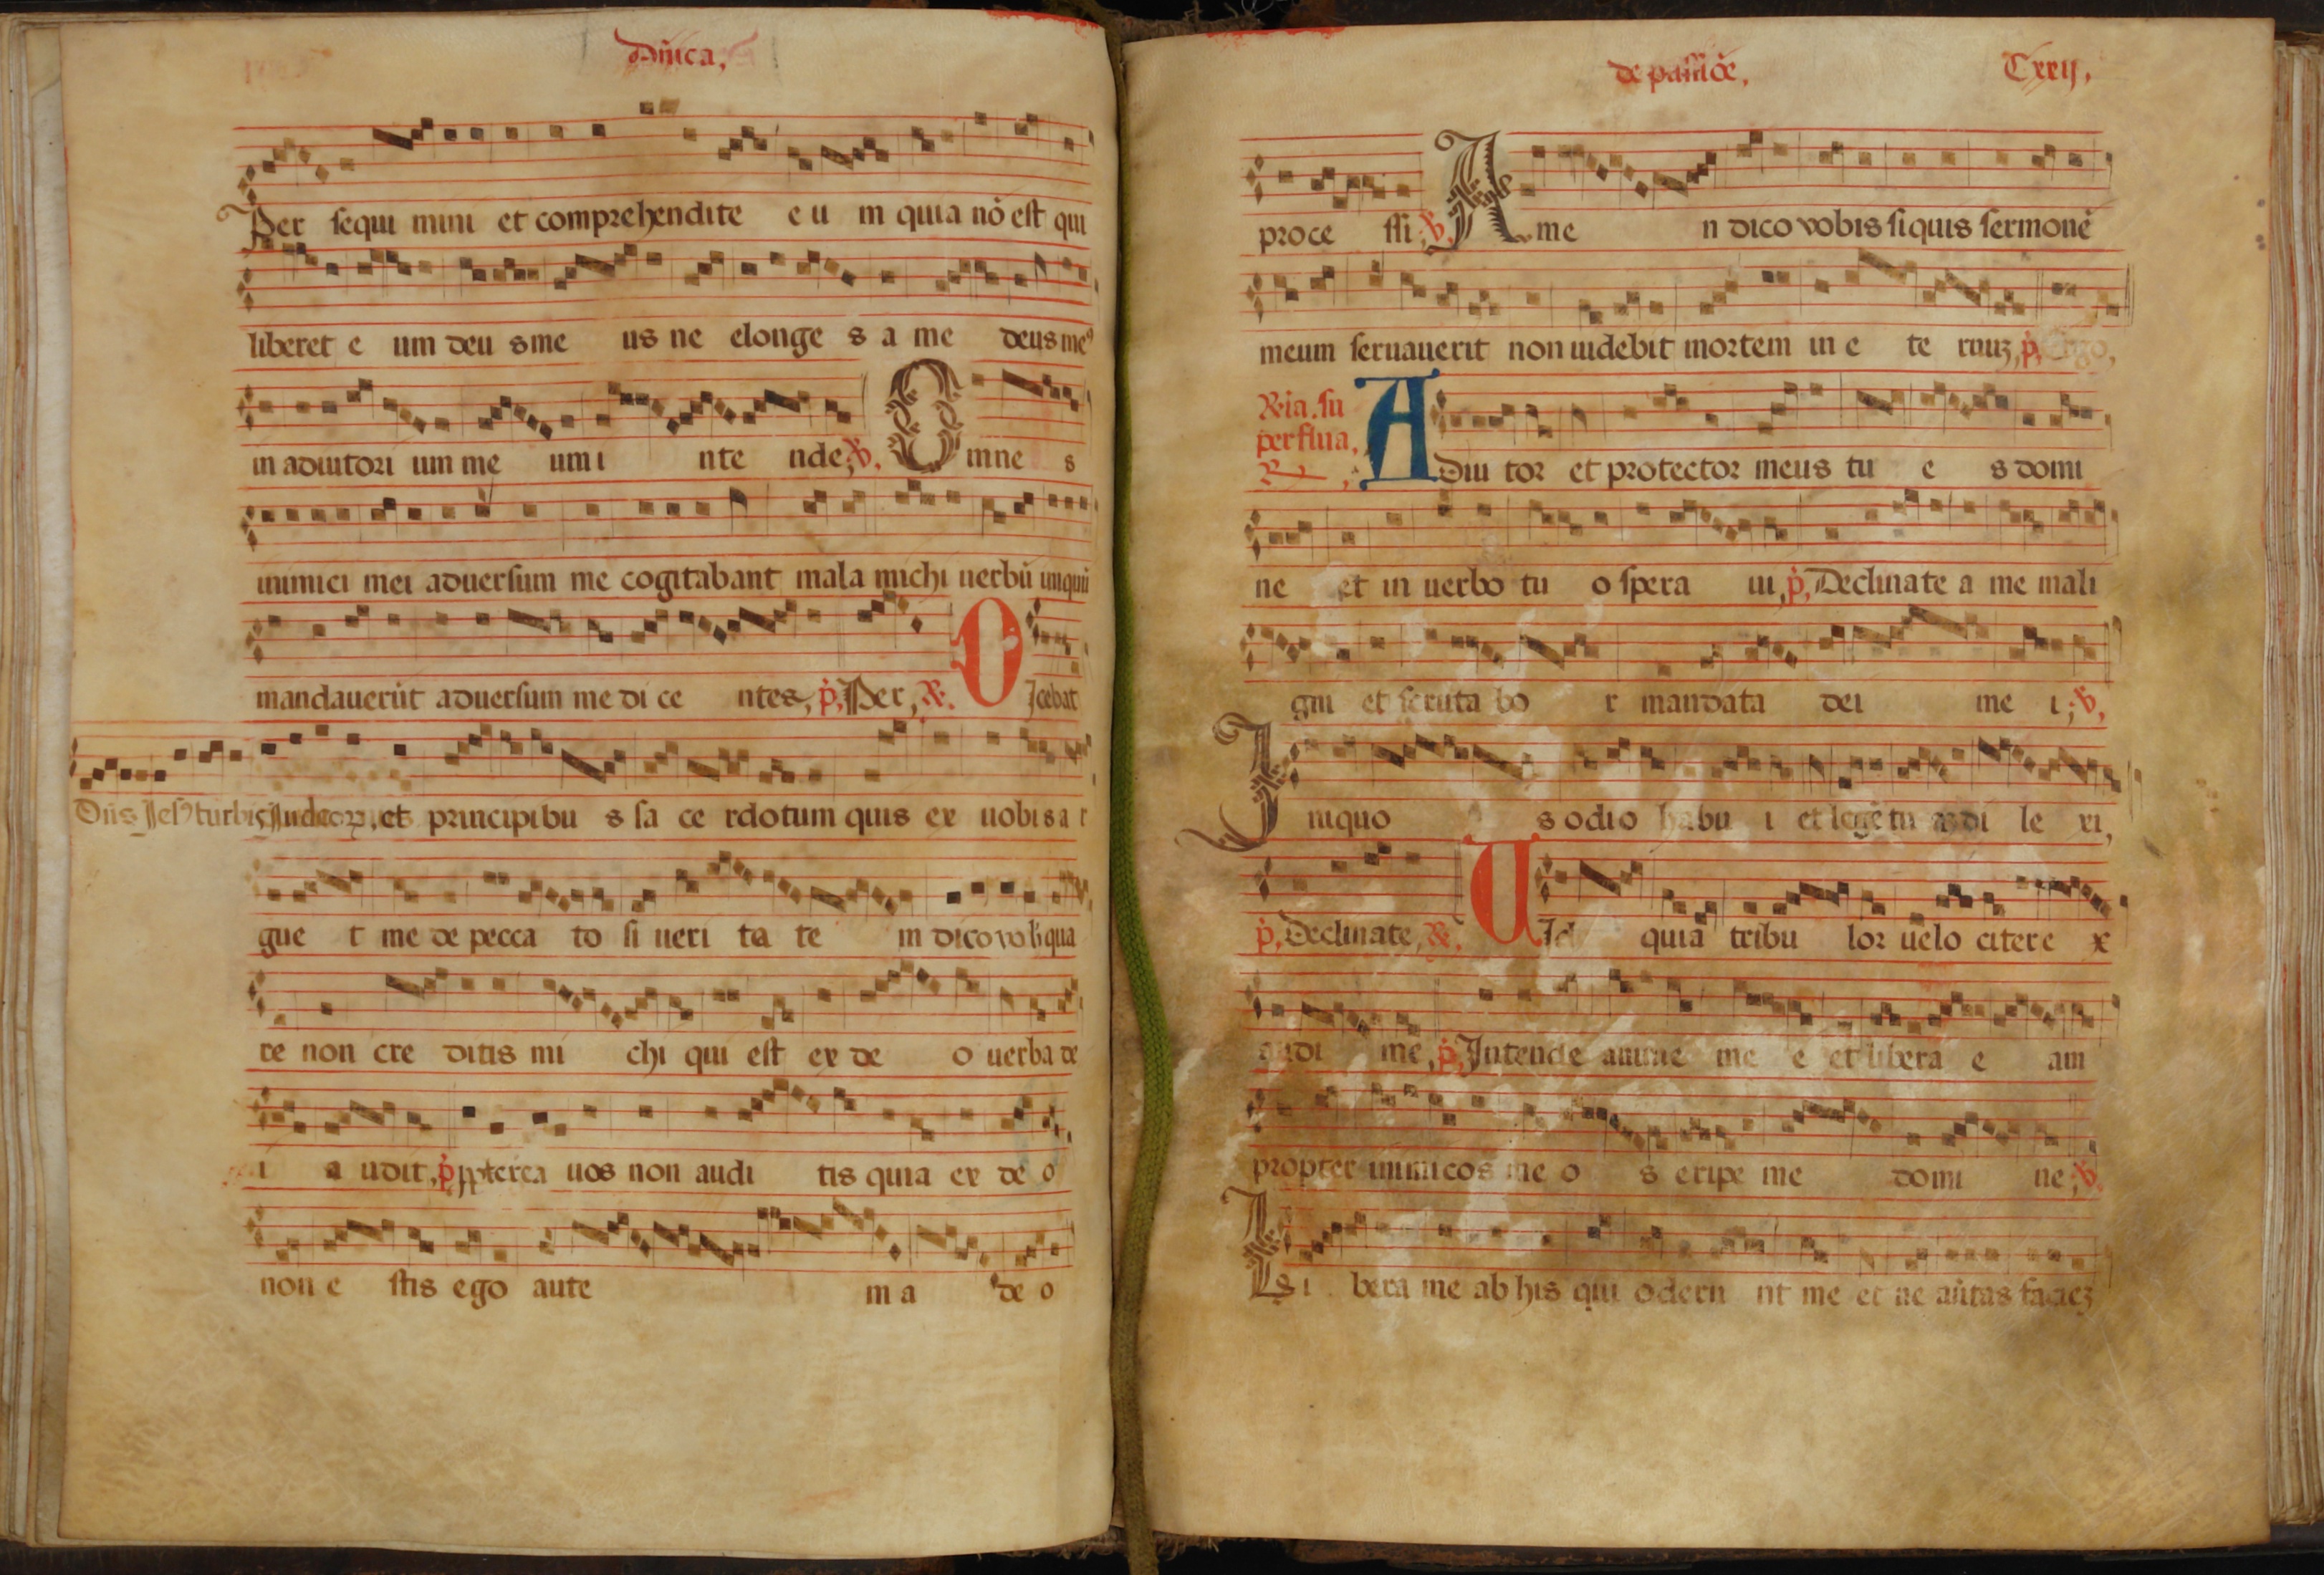 Dn̄ica,
Per sequi mini et comprehendite e u m quia nō est qui
liberet e um deu s me us ne elonge s a me deus meꝰ
in adiutori um me um i nte nde; ℣. Omne s
inimici mei aduersum me cogitabant mala michi uerbū iniquū
mandauerūt aduersum me di ce ntes, p̄. Per, ℟. Dicebat
Dn̄s Jesꝰ turbis Judeoꝝ, et principibu s sa ce rdotum quis ex uobis a r
gue t me de pecca to si ueri ta te m dico vob' qua
re non cre ditis mi chi qui est ex de o uerba de
i a udit, p̄. ꝓpterea uos non audi tis quia ex de o
non e stis ego aute m a de o
de passiōe, Cxxij,
proce ssi; ℣. Ame n dico vobis siquis sermonē
meum seruauerit non uidebit mortem in e te rnuꝫ, p̄. Ergo,
℟ia. su
perflua,
℟ Adiu tor et protector meus tu e s domi
ne et in uerbo tu o spera ui, p̄. Declinate a me mali
gni et scruta bo r mandata dei me i; ℣.
Iniquo s odio habu i et legē tu aꝫ di le xi,
p̄. Declinate, ℟. Uid quia tribu lor uelo citer e x
audi me, p̄. Intende anime me e et libera e am
propter inimicos me o s eripe me domi ne; ℣.
Li bera me ab his qui oderu nt me et ne aūtas facieꝫ